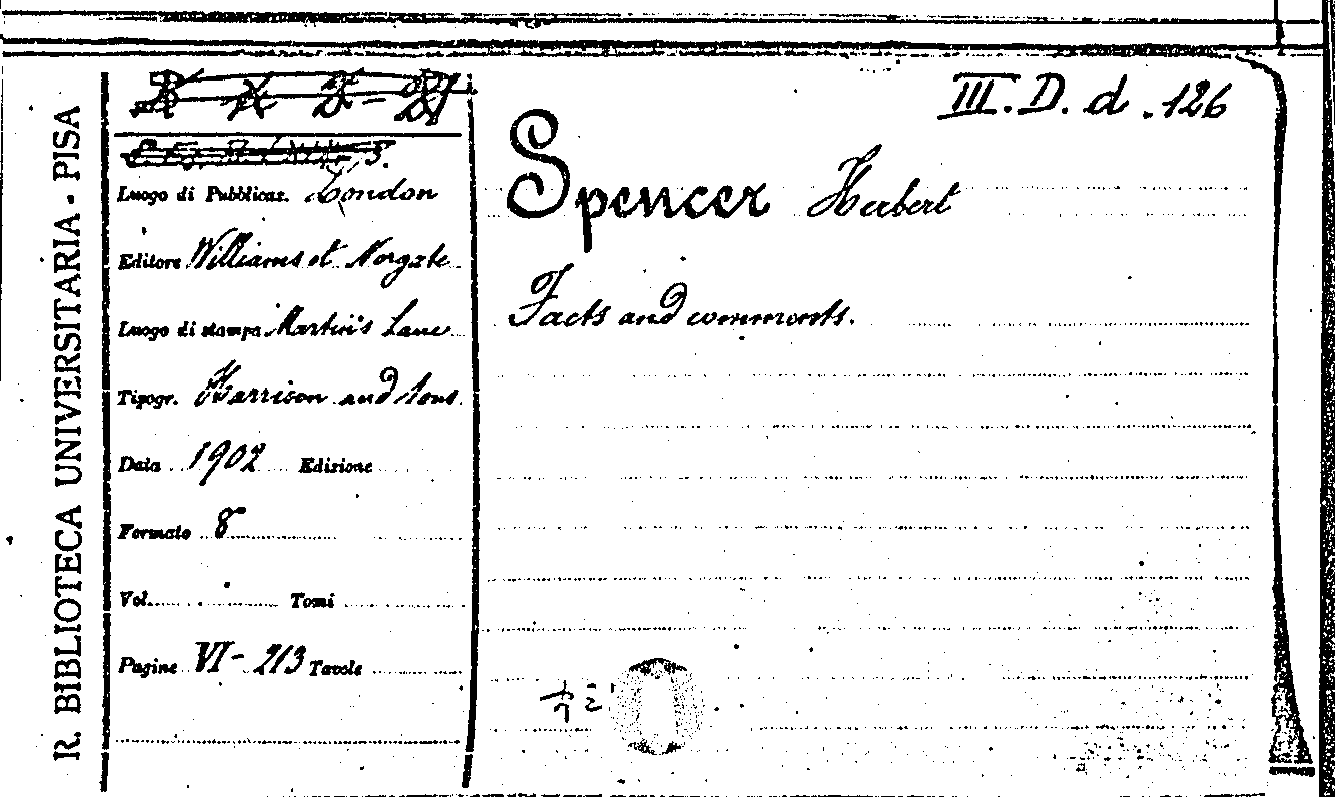 R. BIBLIOTECA UNIVERSITARIA - PISA
III. D. d. 126
Luogo di Pubblicaz. London
Editore Williams et Norgate
Luogo di stampa Martin's Lane
Tipogr. Harrison and Sons
Data 1902 Edizione
Formato 8
Vol. Tomi
Pagine VI - 213 Tavole
Spencer Herbert
Facts and comments.